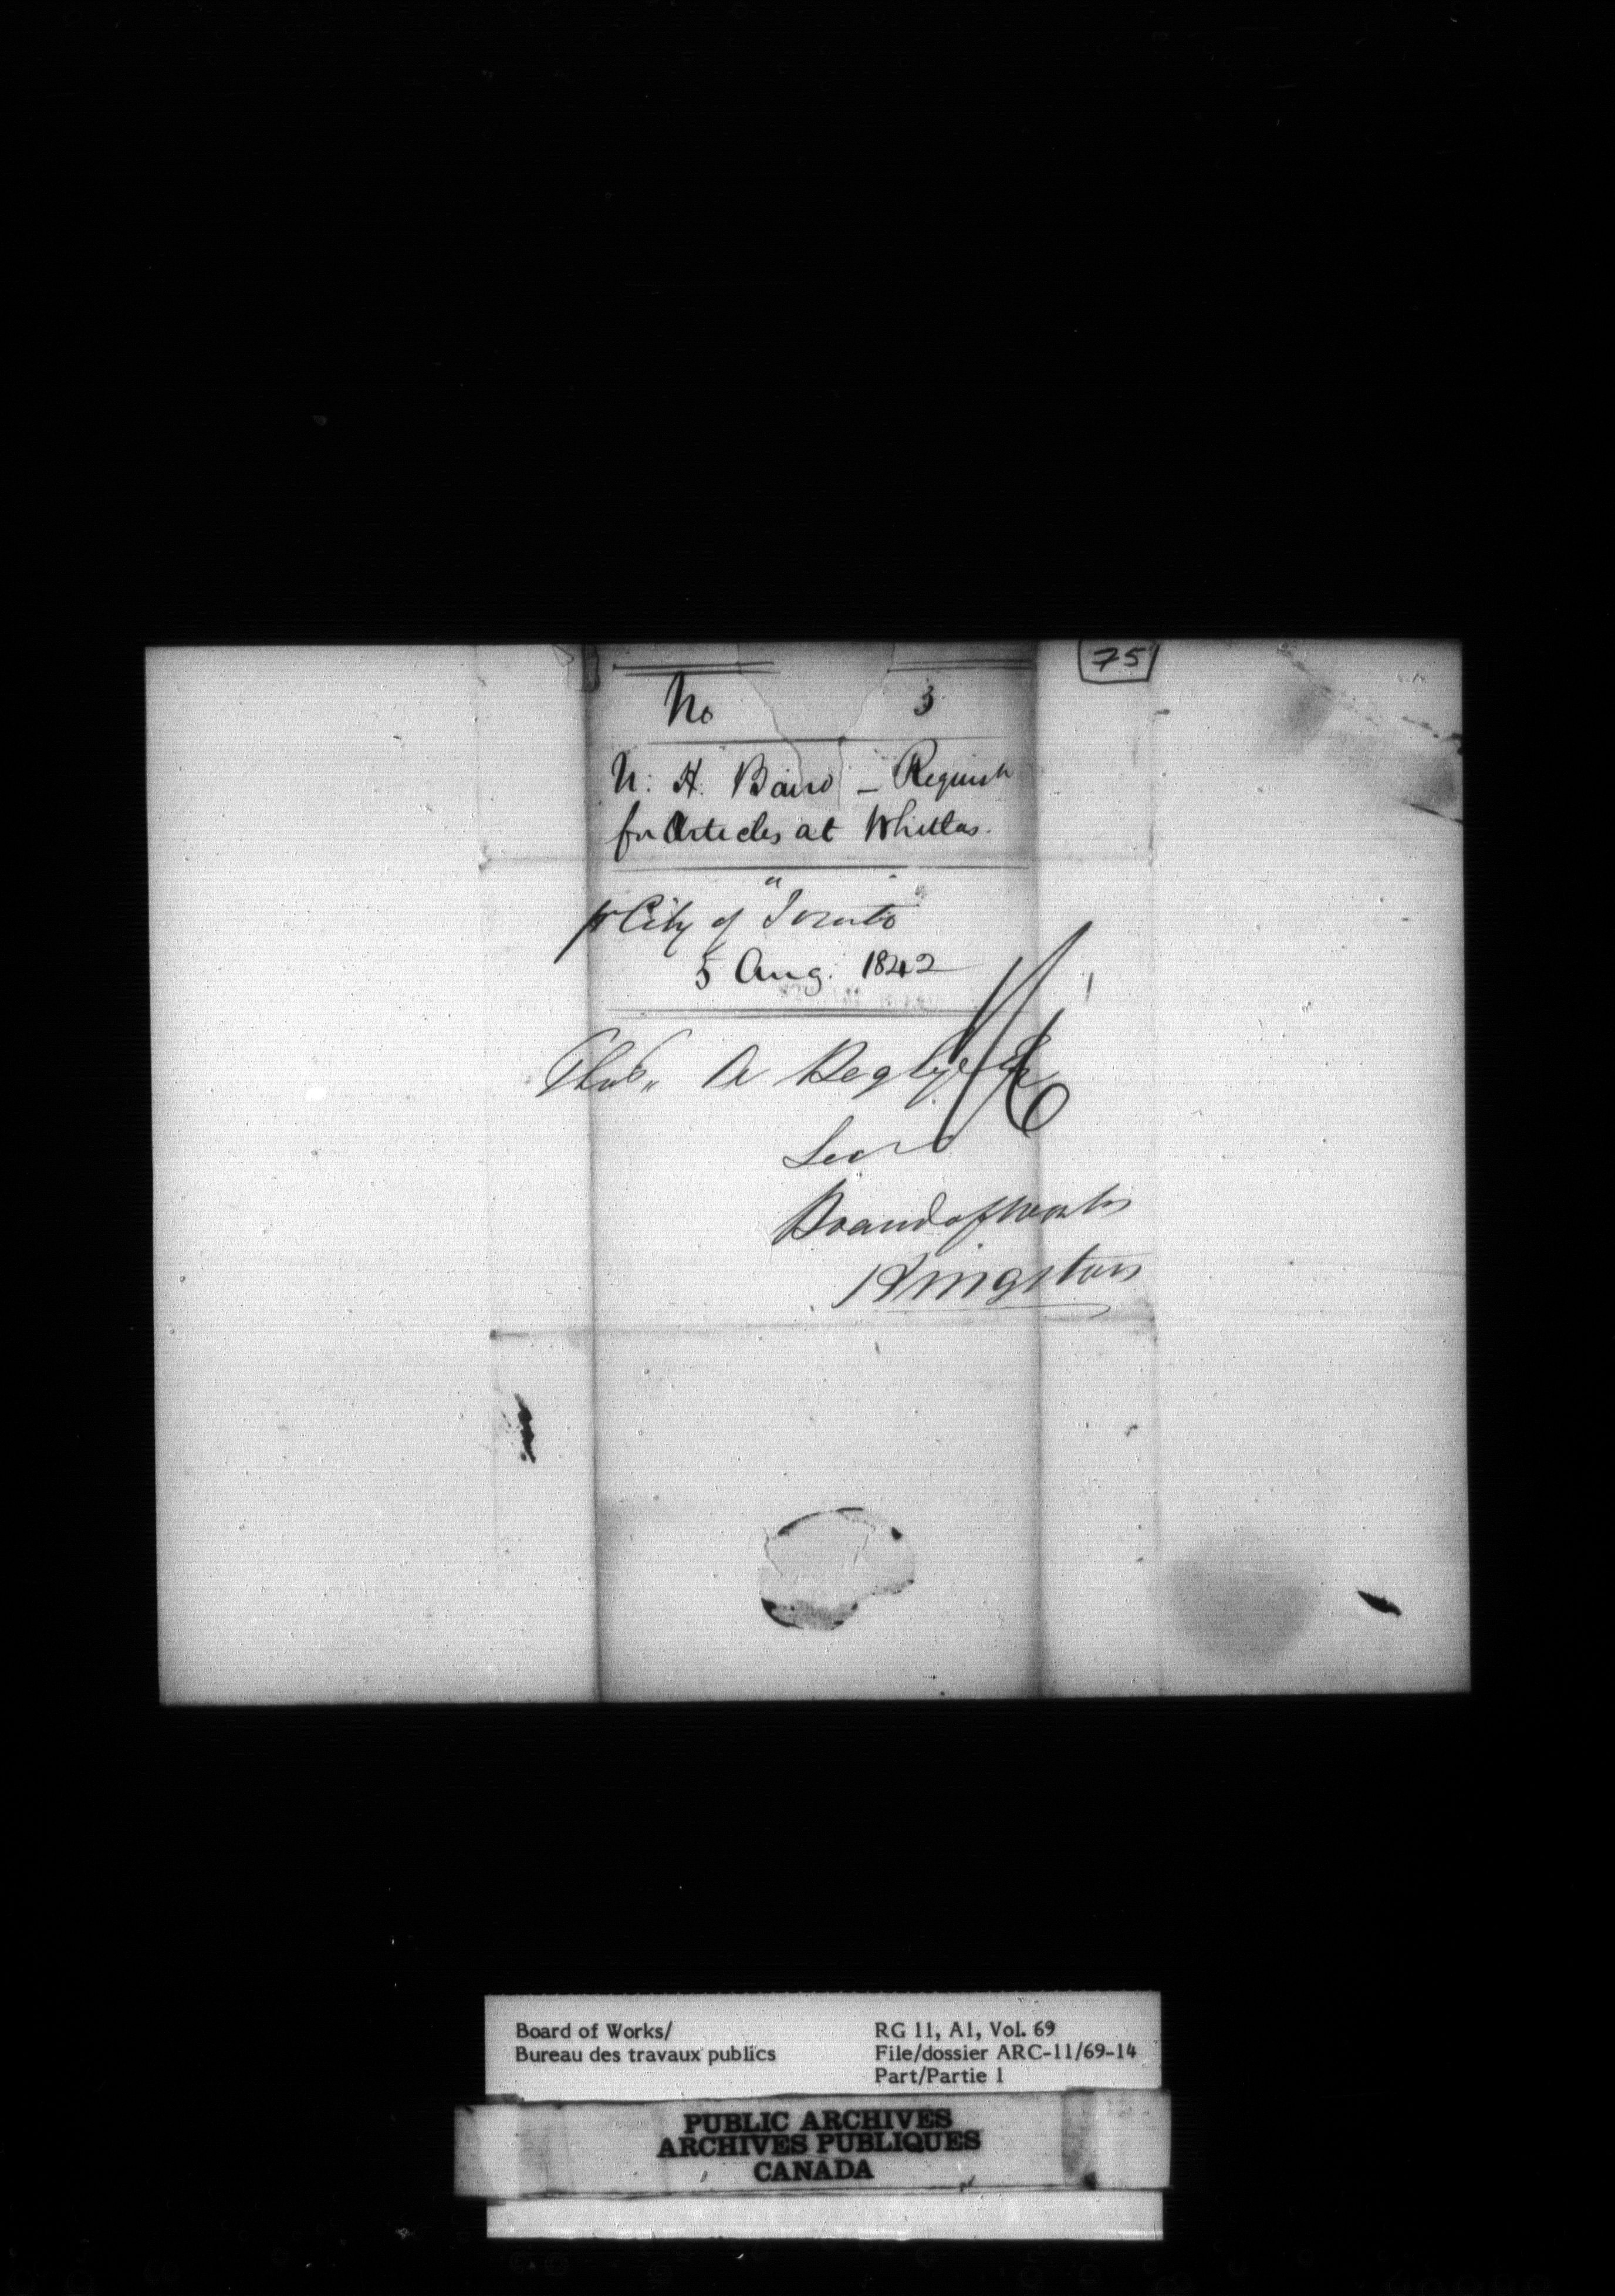 75
No 3
N. H. Baird - Requist
for Articles at Whitlas.
pr City of "Toronto"
5 Aug. 1842
Thos. A Begly Esq
Secr
Board of works
Kingston
Board of Works/
Bureau des travaux publics
RG 11, A1, Vol. 69
File/dossier ARC-11/69-14
Part/Partie 1
PUBLIC ARCHIVES
ARCHIVES PUBLIQUES
CANADA